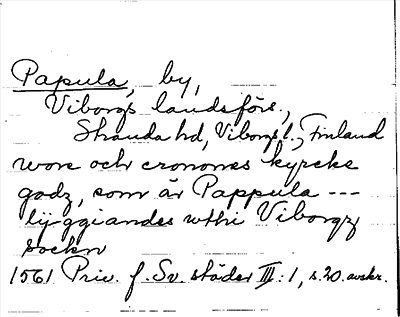 Papula, by,
Viborgs landsförs.,
Stranda hd, Viborgs l., Finland
wore och cronones kyrcke
godz, som är Pappula ---
lijggiandes wthi Viborgz
sockn
1561 Priv. f. Sv. städer III: 1, s. 20. avskr.